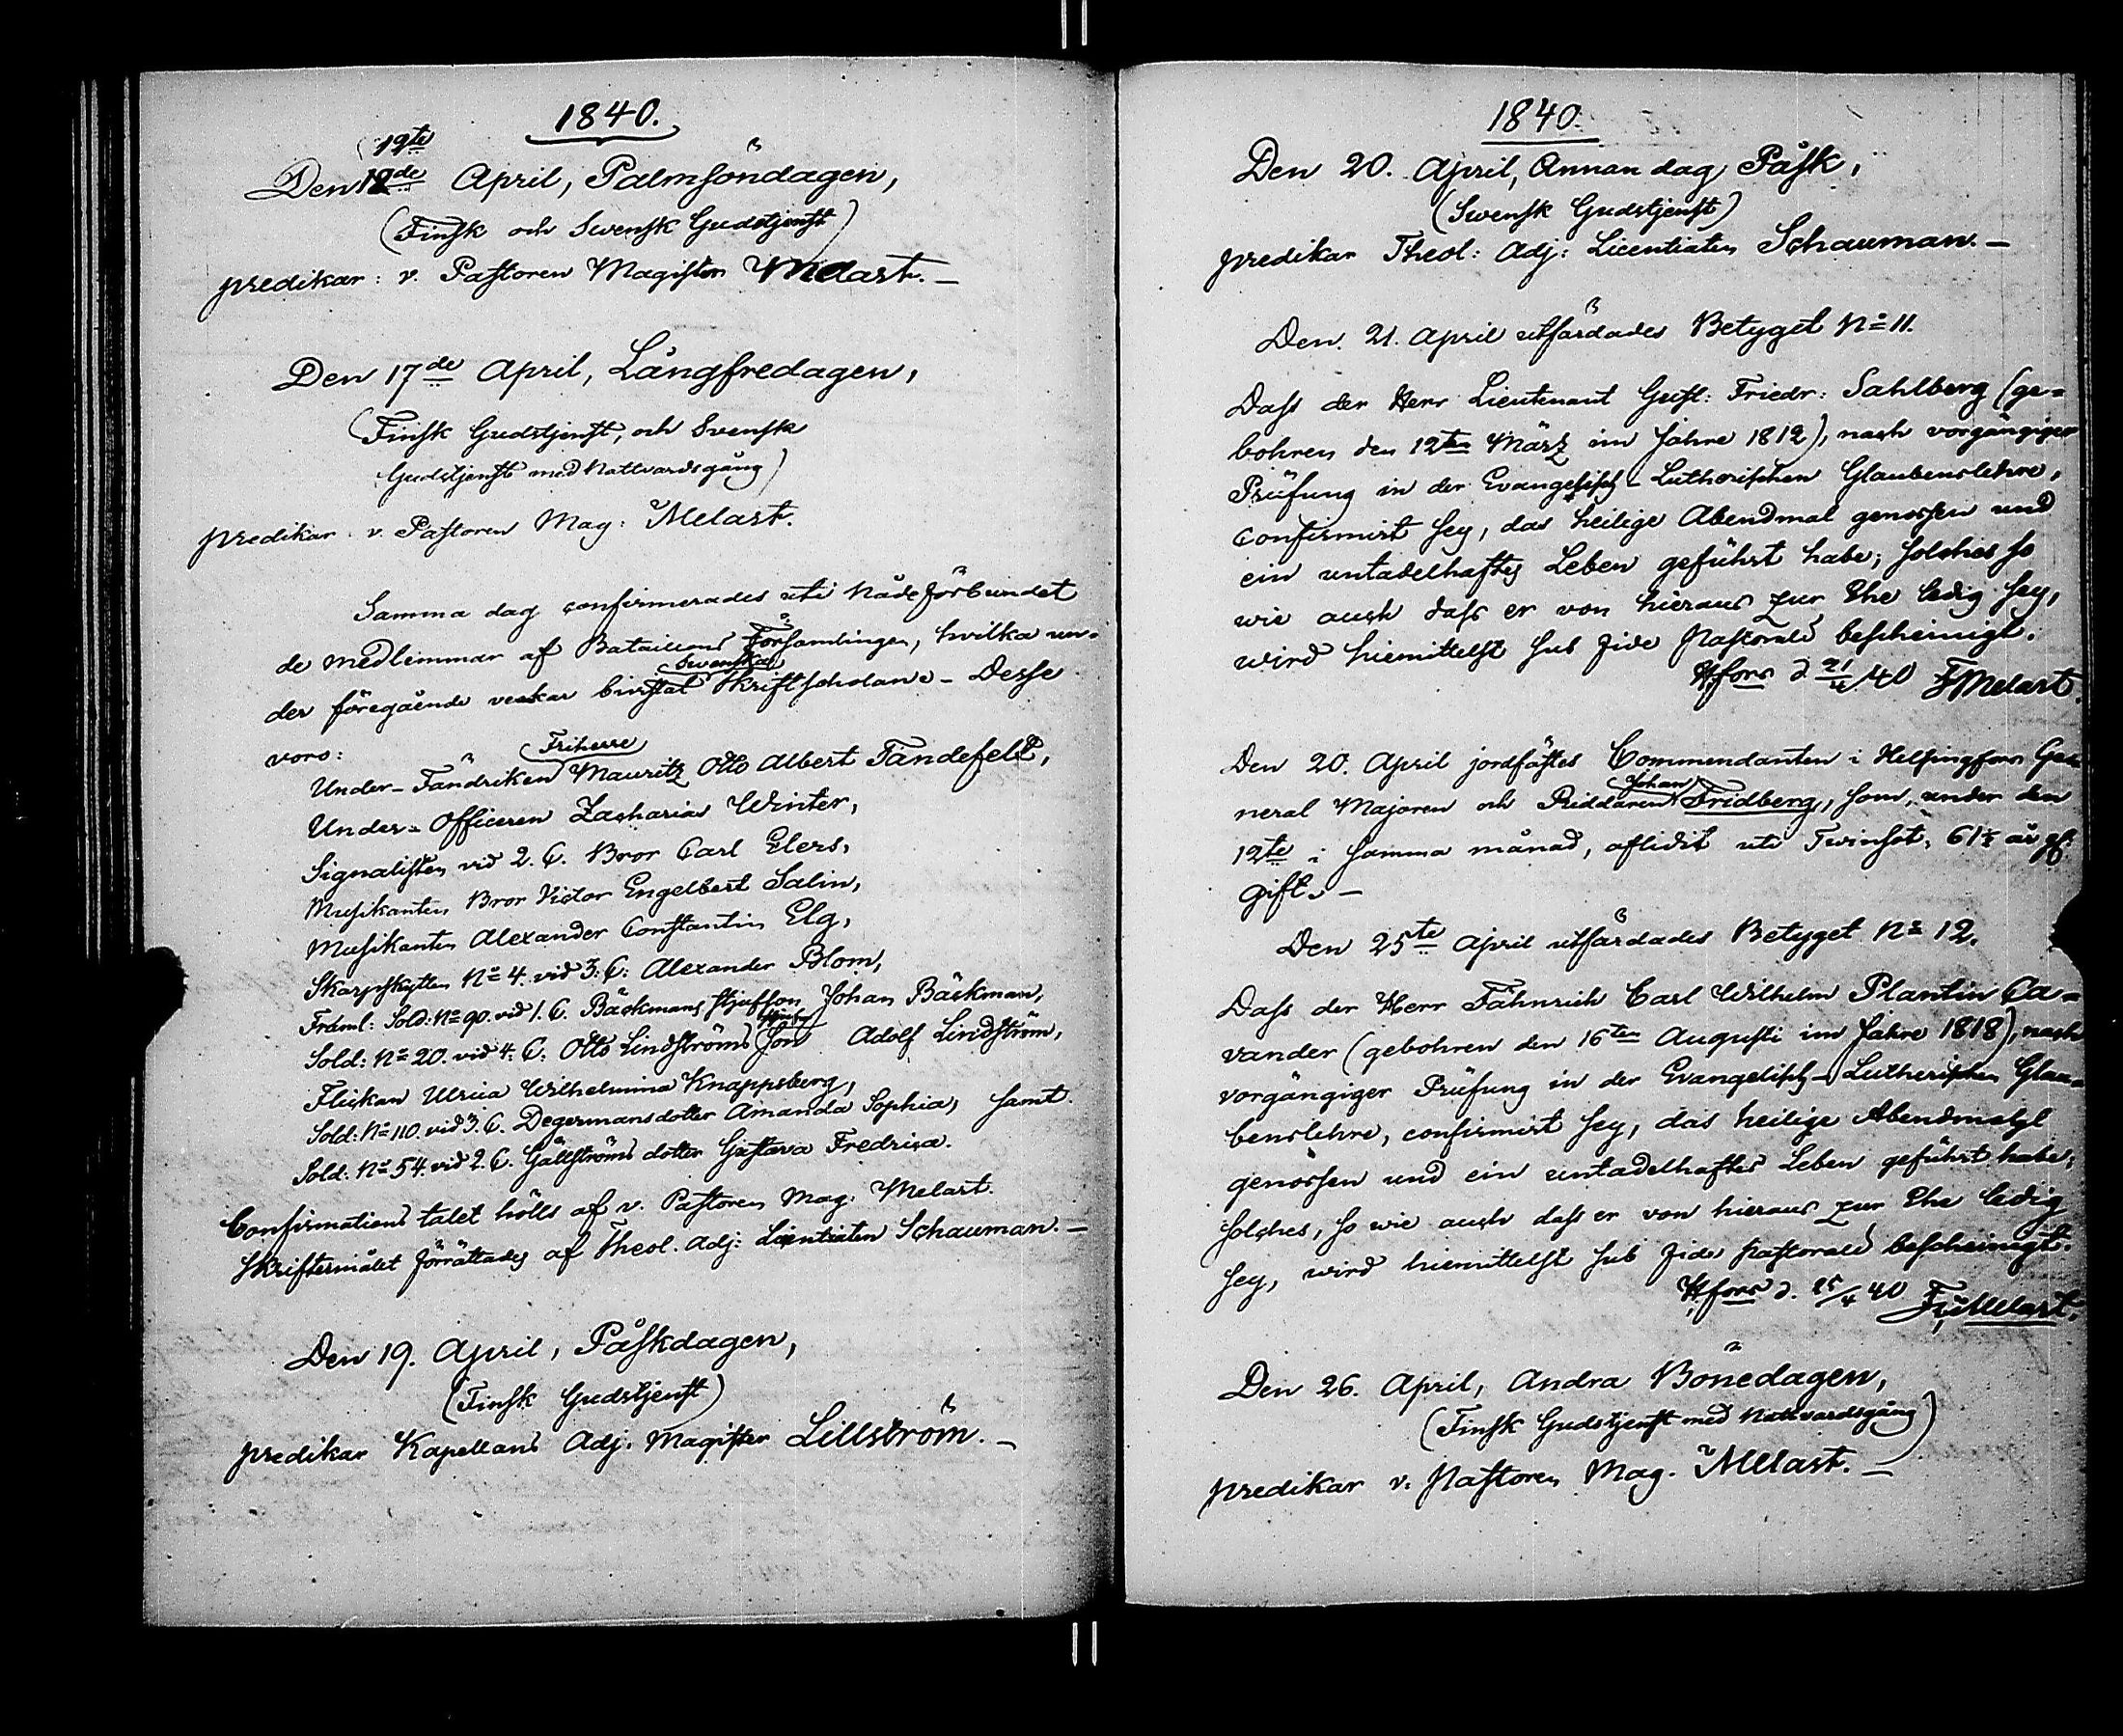 1840.
12te
Den 12de April, Palmsöndagen,
(Finsk och Swensk Gudstjenst)
predikar: v. Pastoren Magister Melart. —
Den 17de April, Långfredagen,
(Finsk Gudstjenst, och Svensk
Gudstjenst med Nattvardsgång)
predikar v. Pastoren Mag: Melart.
Samma dag confirmerades uti Nådeförbundet
de medlemmar af Bataillons Församlingen, hvilka un-
Swenska
der föregående veckor bivistat Skriftscholan. - Desse
voro:
Friherre
Under-Fändriken Mauritz Otto Albert Tandefelt,
Under-Officeren Zacharias Winter,
Signalisten vid 2. C. Bror Carl Elers,
Musikanten Bror Victor Engelbert Salin,
Musikanten Alexander Constantin Elg,
Skarpskytten No 4. vid 3: C: Alexander Blom,
Framl: Sold: No 90. vid 1. C. Bäckmans stjufson Johan Bäckman,
Sold: No 20. vid 4. C: Otto Lindströms son Adolf Lindström,
Flickan Ulrica Wilhelmina Knappsberg,
Sold: No 110. vid 3. C. Degermans dotter Amanda Sophia, samt
Sold: No 54. vid 2. C. Gällströms dotter Gustava Fredrica.
Confirmations talet hölls af v. Pastoren Mag. Melart.
Skriftermålet förrättades af Theol. Adj: Licentiaten Schauman. —
Den 19. April, Påskdagen,
(Finsk Gudstjenst)
predikar Kapellans Adj. Magister Lillström. —
1840.
Den 20. April, Annan dag Påsk,
(Swensk Gudstjenst)
predikar Theol: Adj: Licentiaten Schauman. —
Den. 21. April utfärdades Betyget No 11.
Dass der Herr Lieutenant Gust: Friedr: Sahlberg (ge-
bohren den 12ten März im Jahre 1812), nach vorgängiger
Prüfung in der Evangelisch-Lutherischen Glaubenslehre,
confirmirt sey, das heilige Abendmal genossen und
ein untadelhaftes Leben geführt habe; solches so
wie auch dass er von hieraus zur Ehe ledig sey,
wird hiemittelst sub fide pastorali bescheinigt.
Hfors d 21/4 40 F Melart.
Den 20. April jordfästes Commendanten i Helsingfors Ge-
Johan
neral Majoren och Riddaren Fridberg, som, under den
12te i samma månad, aflidit uti Twinsot, 61 1/2 år gl.
gift. —
Den 25te April utfärdades Betyget No 12.
Dass der Herr Fähnrich Carl Wilhelm Plantin Ca-
vander (gebohren den 16ten Augusti im Jahre 1818), nach
vorgängiger Prüfung in der Evangelisch-Lutherischen Glau-
benslehre, confirmirt sey, das heilige Abendmahl
genossen und ein untadelhaftes Leben geführt habe;
solches, so wie auch dass er von hieraus zur Ehe ledig
sey, wird hiemittelst sub fide pastorali bescheinigt.
Hfors d. 25/4 40 F. Melart.
Den 26. April, Andra Bönedagen,
(Finsk Gudstjenst med Nattvardsgång)
predikar v. Pastoren Mag. Melart. —